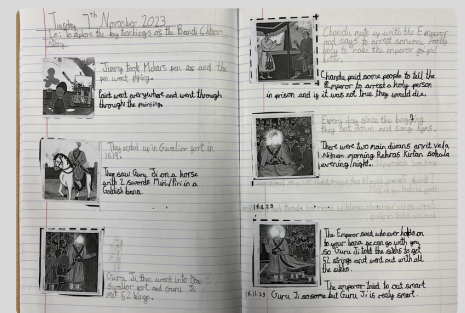 Tuesday 7th November 2023
L.I: To explore the key teachings of the Bandi Chhor
Story.
Jimmy took Mohan's pen and the
pen went
Paint went everywhere and went through
through the painting.
They ended up in Gwalior fort in
1619.
They saw Guru Ji on a horse
with 2 swords Miri/Piri in a
Golden bana.
Guru Ji then went into the
Gwalior fort and Guru Ji
met 52 kings.
Chandu meets up with the Emperor
and says to arrest someone
to make the emperor
Chandu paid some people to tell the
Emperor to arrest a holy person
in prison and if it was not true they would die.
Every day since the begging
they sat down and sang hyms.
There were two main divans amrit vela
At 4am morning Rehras Kirtan sohela
evening/night.
14.11.23
The Emperor said who ever holds on
to your bana can go with you
so Guru Ji told the sikhs to get
52 strings and went out with all
the sikhs.
The emperor tried to out smart
14.11.23 Guru Ji so some but Guru Ji is really smart.